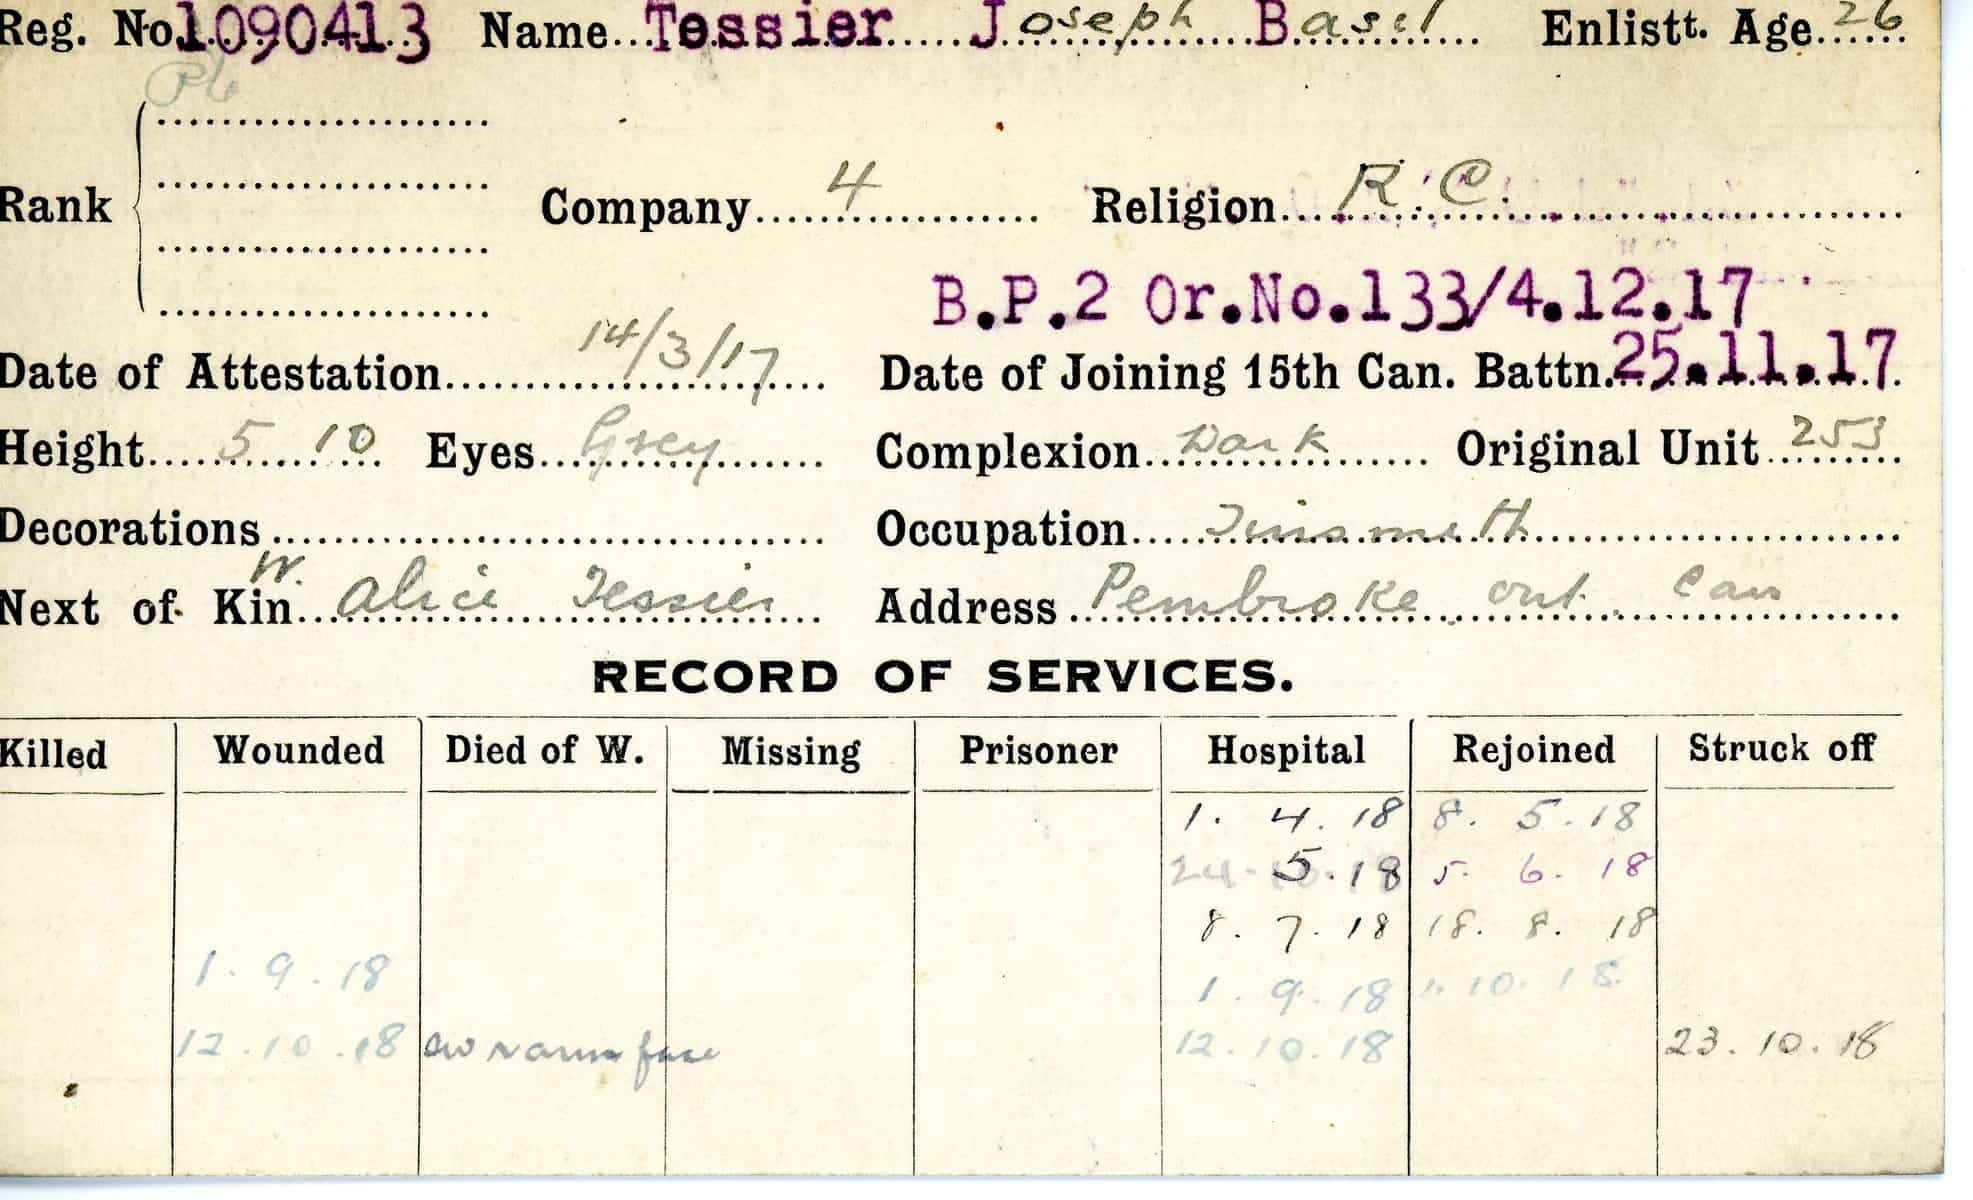 Reg. No. 1090413 Name Tessier Joseph Basil Enlistt. Age 26
Pte
Rank Company 4 Religion R.C.
B.P.2 Or.No.133/4.12.17
Date of Attestation 14/3/17 Date of Joining 15th Can. Battn. 25.11.17.
Height 5 10 Eyes Grey Complexion Dark Original Unit 253
Decorations Occupation Tinsmith
W.
Next of Kin Alice Tessier Address Pembroke Ont. Can
RECORD OF SERVICES.
Killed Wounded Died of W. Missing Prisoner Hospital Rejoined Struck off
1. 4. 18 8. 5. 18
5. 18 5. 6. 18
8. 7. 18 18. 8. 18
1. 9. 18 1. 9. 18 1. 10. 18
12. 10. 18 face 12. 10. 18 23. 10. 18